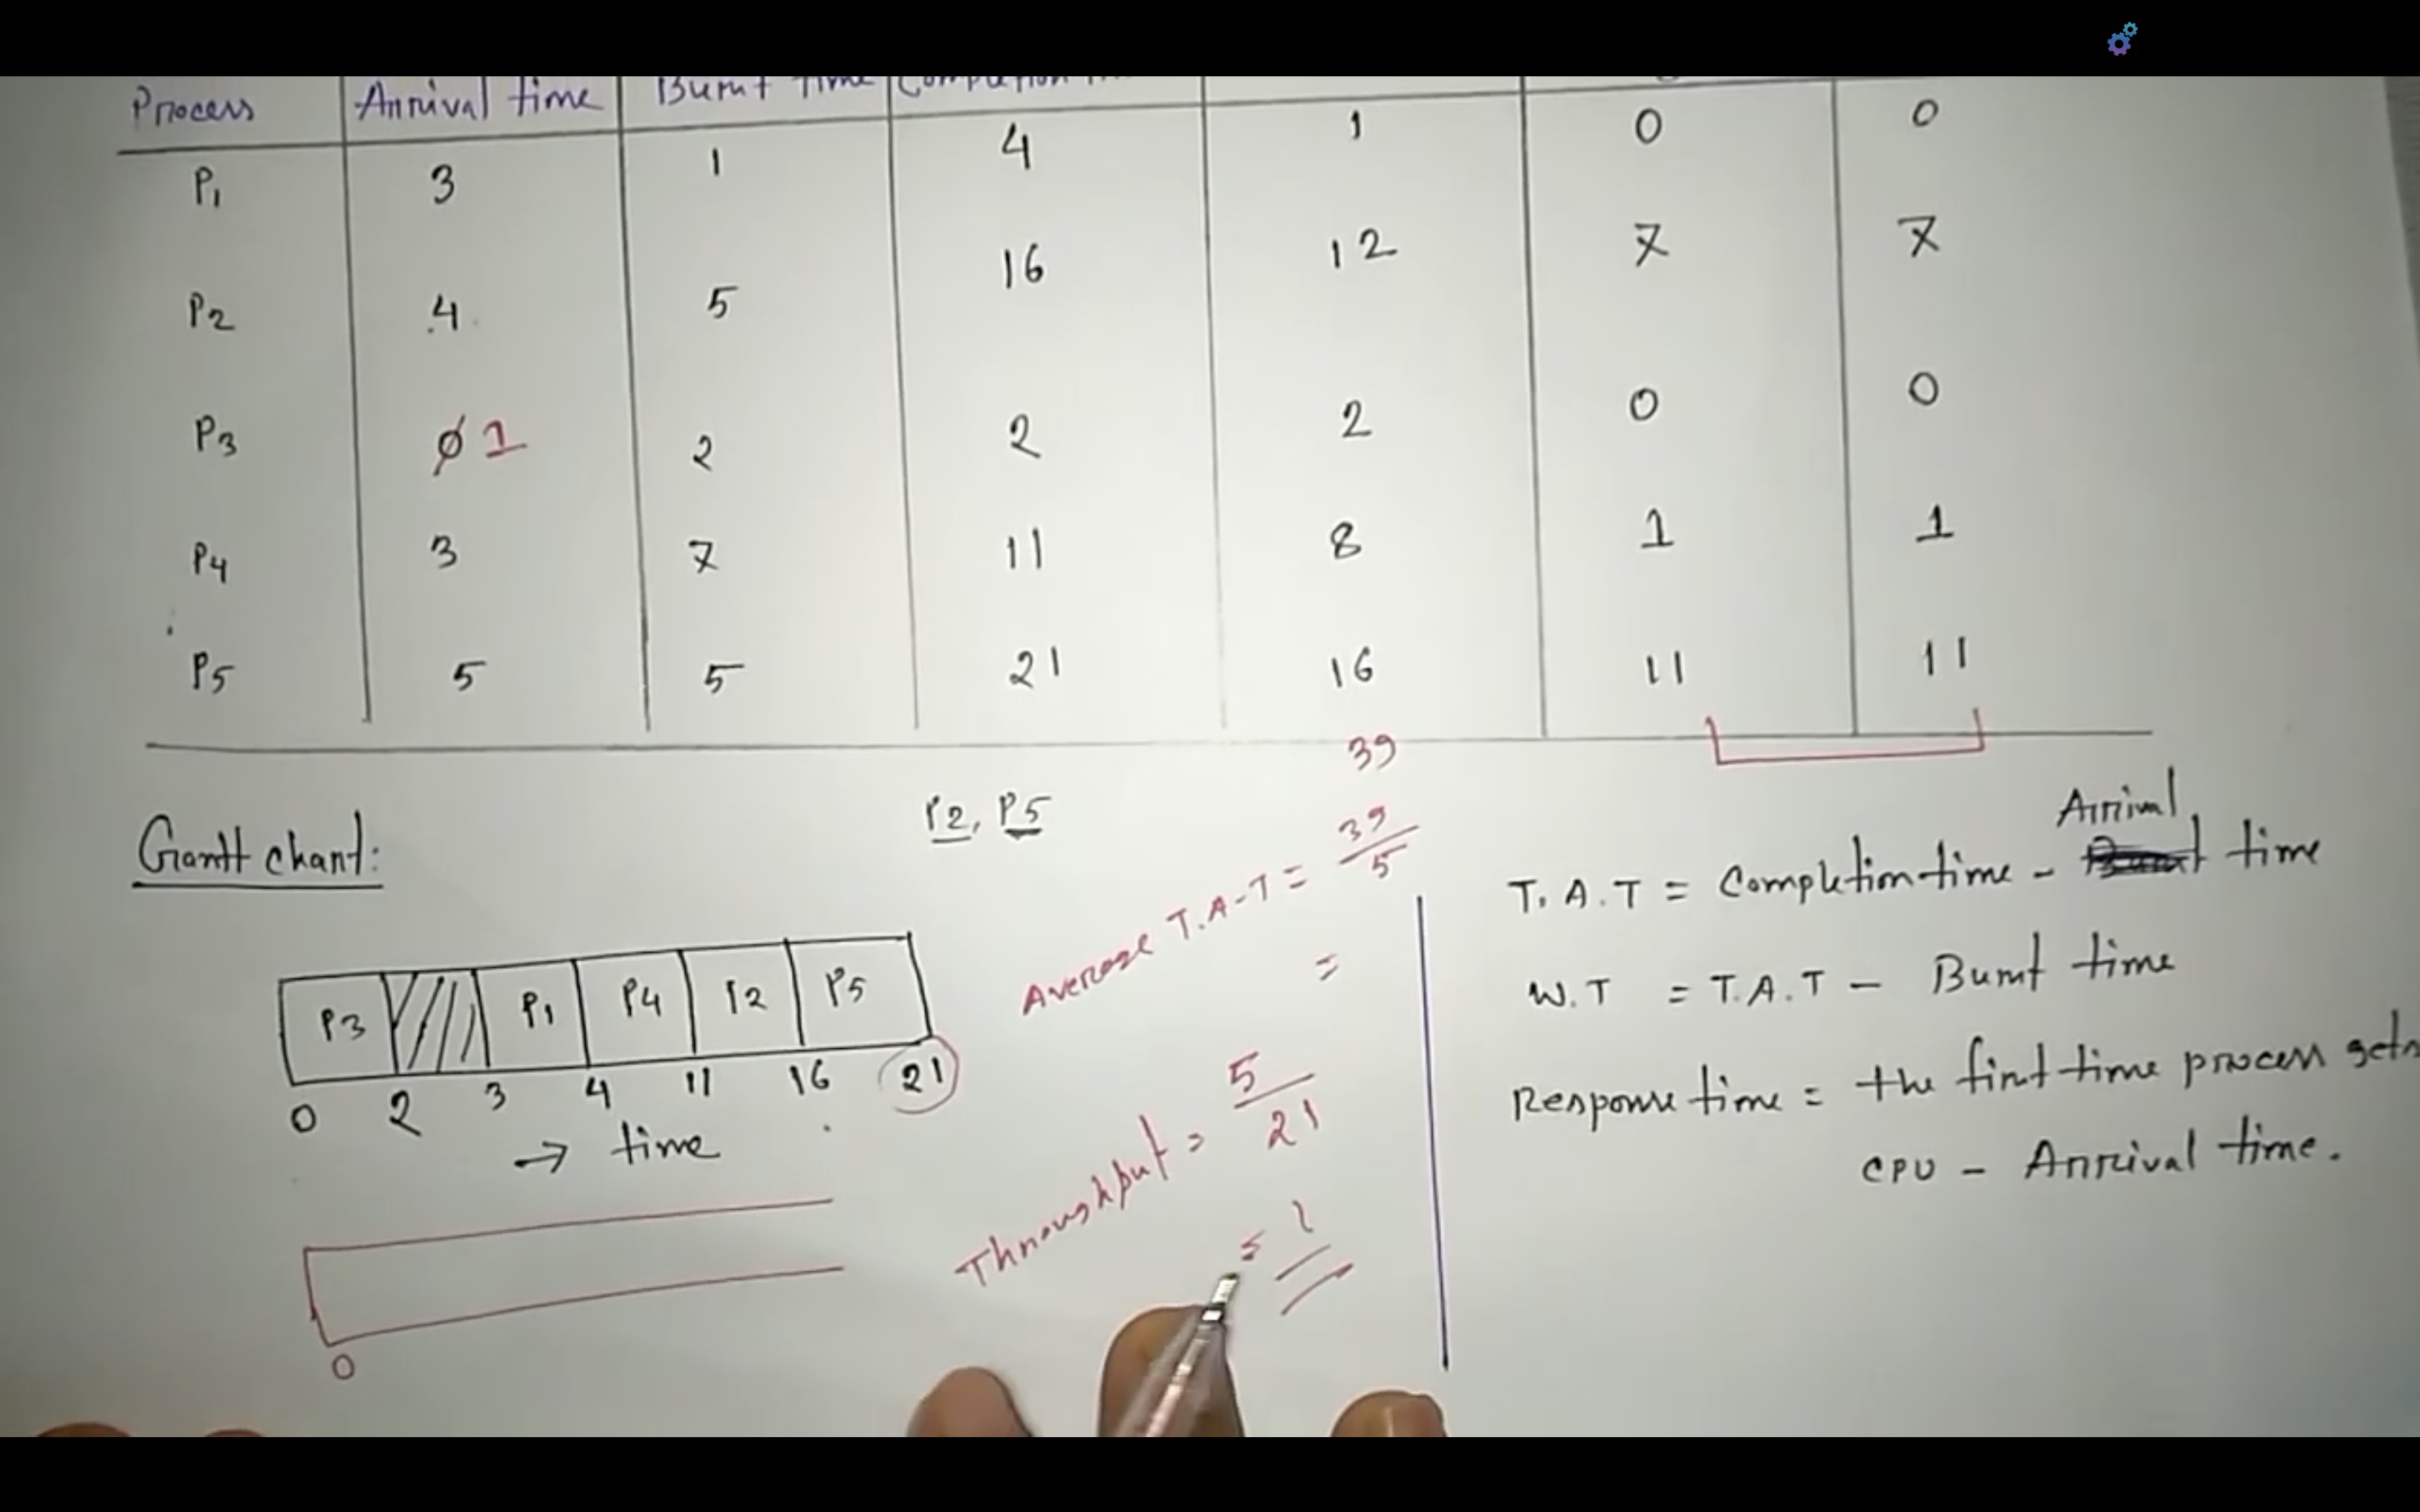 Process Arrival time Burst time Completion
P1 3 1 4 1 0 0
P2 4 5 16 12 7 7
P3 0 1 2 2 2 0 0
P4 3 7 11 8 1 1
P5 5 5 21 16 11 11
39
P2, P5
Gantt chart:
P3 P1 P4 P2 P5
0 2 3 4 11 16 21
→ time
0
Average T.A.T = 39/5
=
Throughput = 5/21
=
Arrival
T.A.T = Completion time - time
W.T = T.A.T - Burst time
Response time = the first time process gets
CPU - Arrival time.